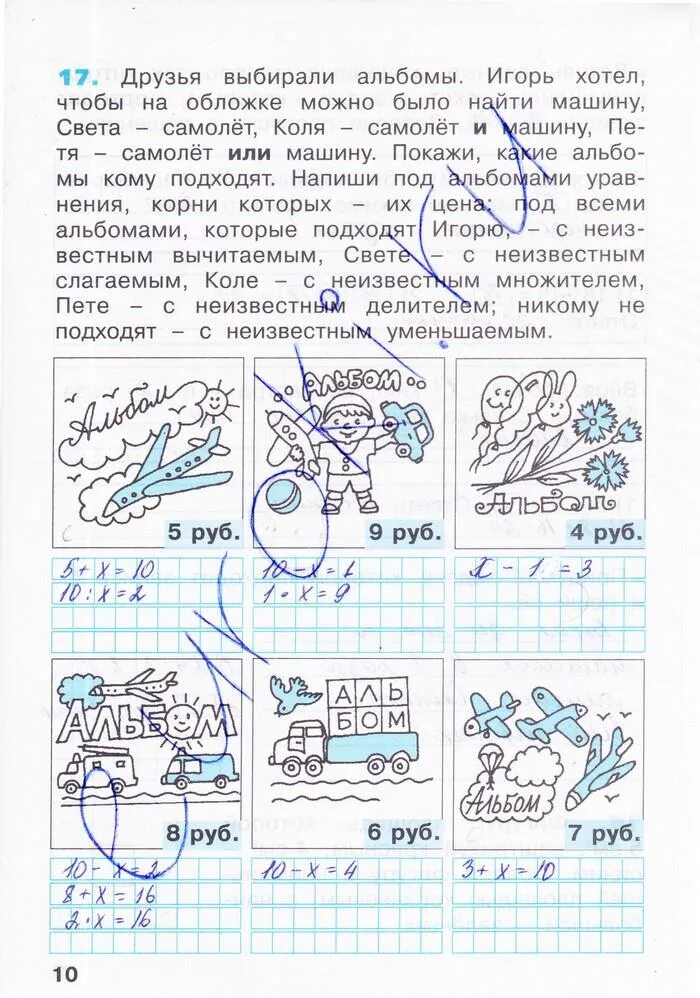 17. Друзья выбирали альбомы. Игорь хотел,
чтобы на обложке можно было найти машину,
Света – самолёт, Коля – самолёт и машину, Пе-
тя – самолёт или машину. Покажи, какие альбо-
мы кому подходят. Напиши под альбомами урав-
нения, корни которых – их цена: под всеми
альбомами, которые подходят Игорю, – с неиз-
вестным вычитаемым, Свете – с неизвестным
слагаемым, Коле – с неизвестным множителем,
Пете – с неизвестным делителем; никому не
подходят – с неизвестным уменьшаемым.
Альбом
АЛЬБОМ
АЛЬБОМ
С
5 руб.
9 руб.
4 руб.
5 + х = 10
10 : х = 2
10 - х = 1
1 · х = 9
х - 1 = 3
АЛЬБОМ
АЛЬ
БОМ
АЛЬБОМ
8 руб.
6 руб.
7 руб.
10 - х = 2
8 + х = 16
2 · х = 16
10 - х = 4
3 + х = 10
10